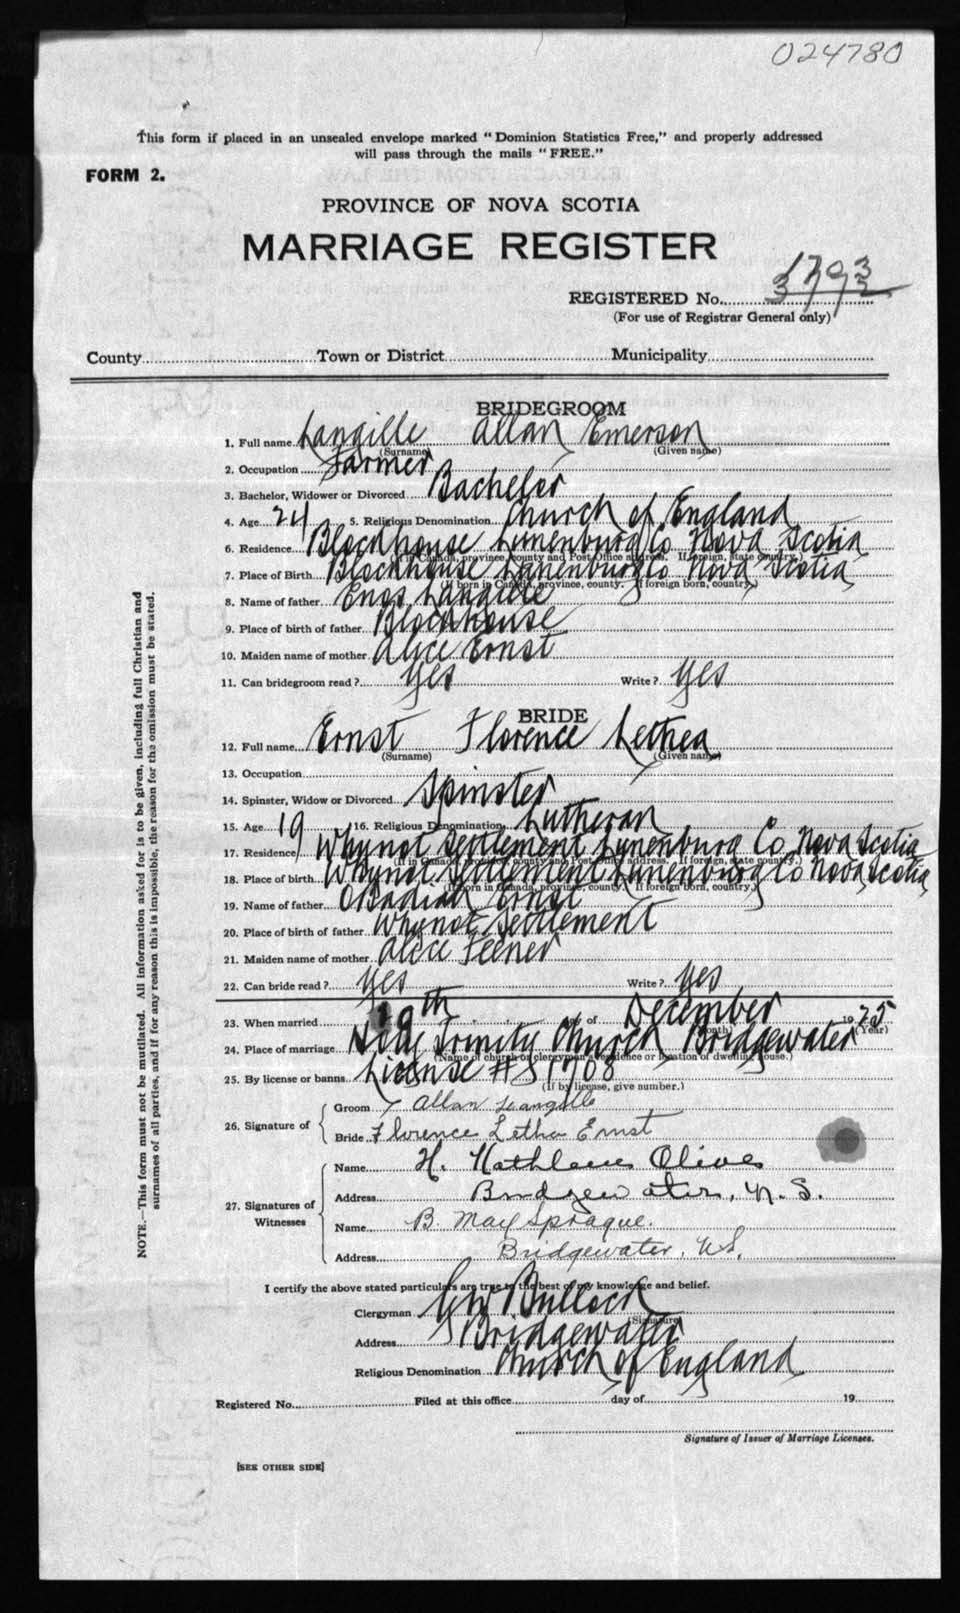 024780
This form if placed in an unsealed envelope marked "Dominion Statistics Free," and properly addressed
will pass through the mails "FREE."
FORM 2.
PROVINCE OF NOVA SCOTIA
MARRIAGE REGISTER
1793
REGISTERED No.
(For use of Registrar General only)
County Town or District Municipality
BRIDEGROOM
1. Full name Langille Allan Emerson
(Surname) (Given name)
2. Occupation Farmer
3. Bachelor, Widower or Divorced Bachelor
4. Age 24 5. Religious Denomination Church of England
6. Residence Blockhouse Lunenburg Co Nova Scotia
(If in Canada, province, county and Post Office address. If foreign, state country.)
7. Place of Birth Blockhouse Lunenburg Co Nova Scotia
(If born in Canada, province, county. If foreign born, country.)
8. Name of father Enos Langille
9. Place of birth of father Blockhouse
10. Maiden name of mother Alice Ernst
11. Can bridegroom read? Yes Write? Yes
BRIDE
12. Full name Ernst Florence Lethea
(Surname) (Given name)
13. Occupation
14. Spinster, Widow or Divorced Spinster
15. Age 19 16. Religious Denomination Lutheran
17. Residence Whynot Settlement Lunenburg Co Nova Scotia
(If in Canada, province, county and Post Office address. If foreign, state country.)
18. Place of birth Whynot Settlement Lunenburg Co Nova Scotia
(If born in Canada, province, county. If foreign born, country.)
19. Name of father Obadiah Ernst
20. Place of birth of father Whynot Settlement
21. Maiden name of mother Alice Feener
22. Can bride read? Yes Write? Yes
23. When married day of December 1925
(Month) (Year)
24. Place of marriage Holy Trinity Church Bridgewater
(Name of church or clergyman's residence or location of dwelling house.)
25. By license or banns License # 51708
(If by license, give number.)
26. Signature of
Groom Allan Langille
Bride Florence Letha Ernst
27. Signatures of Witnesses
Name H. Kathleen Olive
Address Bridgewater, N.S.
Name B. May Sprague.
Address Bridgewater, N.S.
I certify the above stated particulars are true to the best of my knowledge and belief.
Clergyman Bullock
(Signature)
Address Bridgewater
Religious Denomination Church of England
Registered No. Filed at this office day of 19
Signature of Issuer of Marriage Licenses.
[SEE OTHER SIDE]
NOTE.—This form must not be mutilated. All information asked for is to be given, including full Christian and
surnames of all parties, and if for any reason this is impossible, the reason for the omission must be stated.